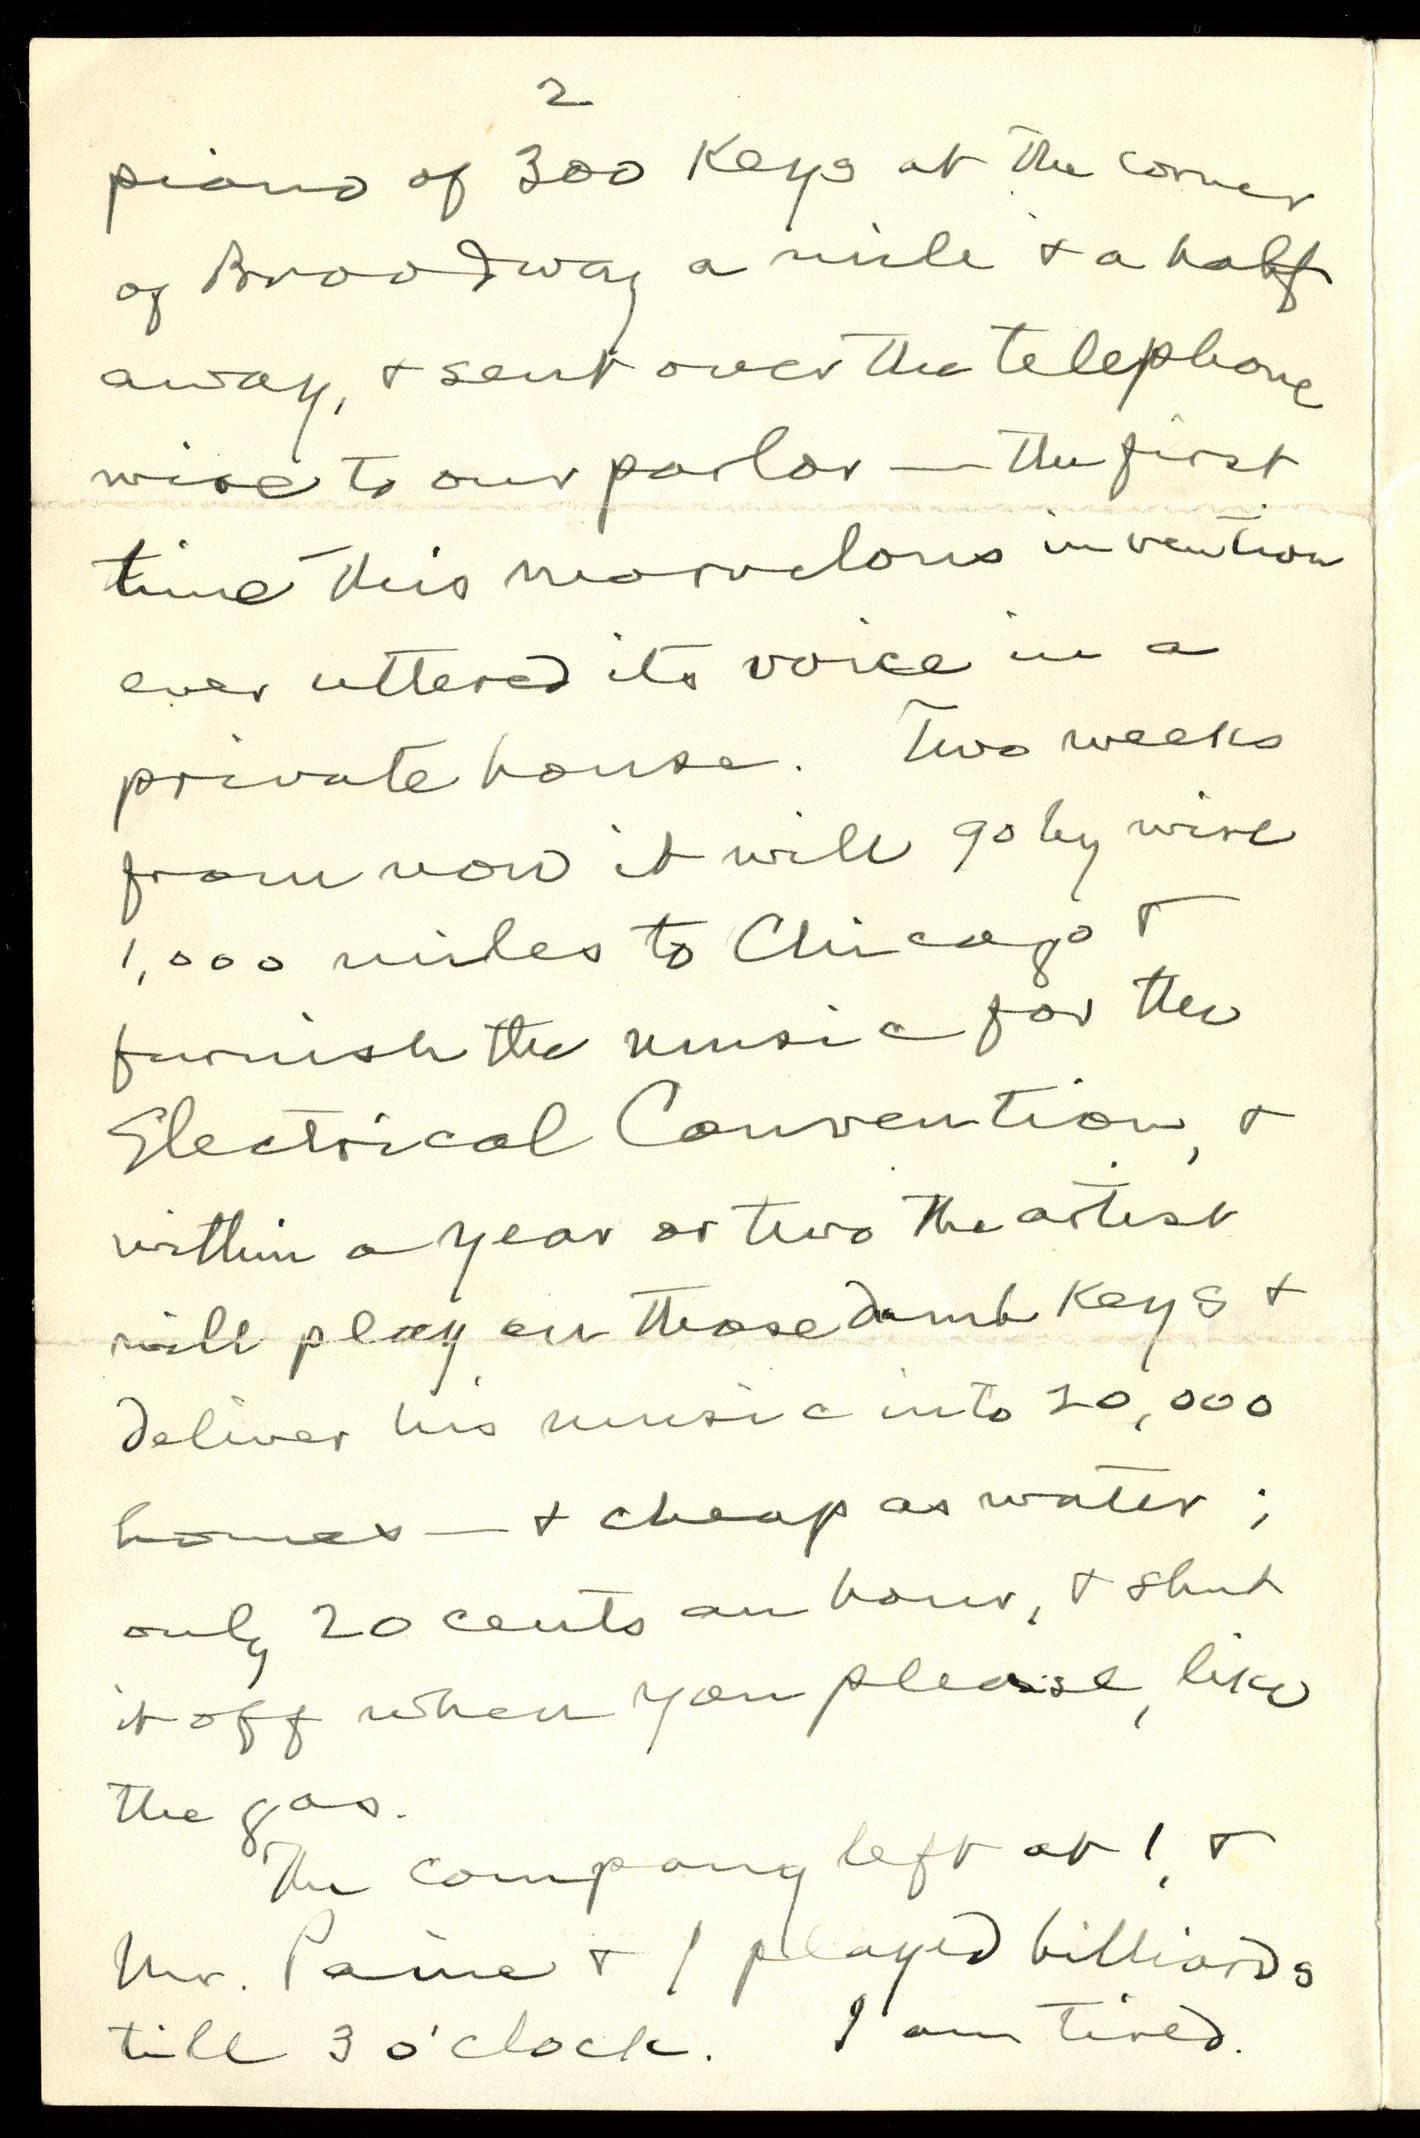 2
piano of 300 keys at the corner
of Broadway a mile & a half
away, & sent over the telephone
wire to our parlor — the first
time this marvelous invention
ever uttered its voice in a
private house. Two weeks
from now it will go by wire
1,000 miles to Chicago &
furnish the music for the
Electrical Convention, &
within a year or two the artist
will play on those dumb keys &
deliver his music into 20,000
homes — & cheap as water;
only 20 cents an hour, & shut
it off when you please, like
the gas.
The company left at 1, &
Mr. Paine & I played billiards
till 3 o'clock. I am tired.